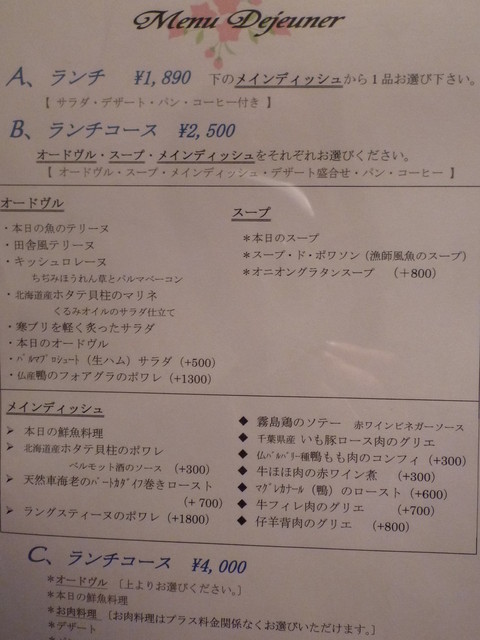 Menu Dejeuner
A、ランチ ¥1,890 下のメインディッシュから1品お選び下さい。
【 サラダ・デザート・パン・コーヒー付き 】
B、ランチコース ¥2,500
オードヴル・スープ・メインディッシュをそれぞれお選びください。
【 オードヴル・スープ・メインディッシュ・デザート盛合せ・パン・コーヒー 】
オードヴル
・本日の魚のテリーヌ
・田舎風テリーヌ
・キッシュロレーヌ
ちぢみほうれん草とパルマベーコン
・北海道産ホタテ貝柱のマリネ
くるみオイルのサラダ仕立て
・寒ブリを軽く炙ったサラダ
・本日のオードヴル
・パルマプロシュート（生ハム）サラダ (+500)
・仏産鴨のフォアグラのポワレ (+1300)
スープ
＊本日のスープ
＊スープ・ド・ポワソン（漁師風魚のスープ）
＊オニオングラタンスープ （＋800）
メインディッシュ
➢ 本日の鮮魚料理
➢ 北海道産ホタテ貝柱のポワレ
ベルモット酒のソース (+300)
➢ 天然車海老のパートカダイフ巻きロースト
(+ 700)
➢ ラングスティーヌのポワレ (+1800)
◆ 霧島鶏のソテー 赤ワインビネガーソース
◆ 千葉県産 いも豚ロース肉のグリエ
◆ 仏バルバリー種鴨もも肉のコンフィ (+300)
◆ 牛ほほ肉の赤ワイン煮 (+300)
◆ マグレカナール（鴨）のロースト (+600)
◆ 牛フィレ肉のグリエ (+700)
◆ 仔羊背肉のグリエ (+800)
C、ランチコース ¥4,000
＊オードヴル 〔上よりお選びください。〕
＊本日の鮮魚料理
＊お肉料理 〔お肉料理はプラス料金関係なくお選びいただけます。〕
＊デザート